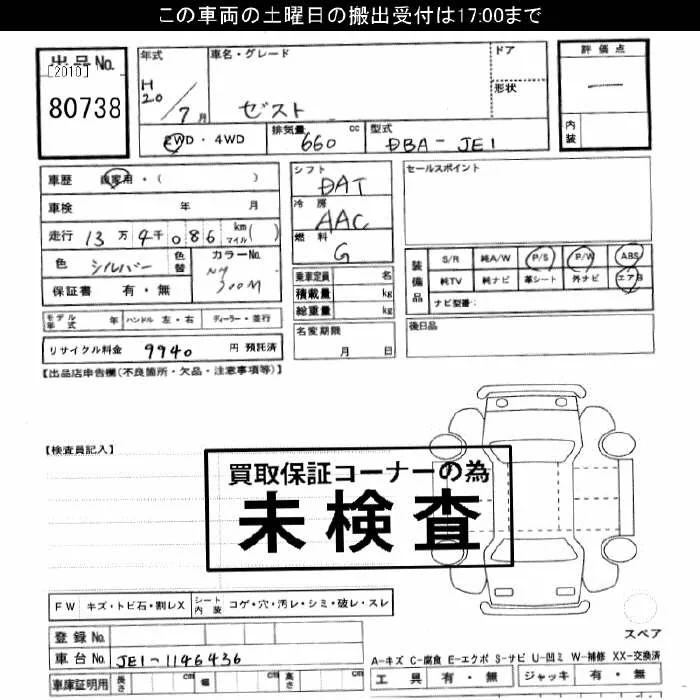 この車両の土曜日の搬出受付は17:00まで
出品No.
[2010]
80738
年式
H20/7月
車名・グレード
ゼスト
ドア
形状
評価点
—
内装
2WD・4WD
排気量 660 cc
型式 DBA-JE1
車歴 自家用・( )
車検 年 月
走行 13万4千086 km マイル( )
色 シルバー 色替
カラーNo. NH 700M
保証書 有・無
シフト DAT
冷房 AAC
燃料 G
乗車定員 名
積載量 kg
総重量 kg
名変期限
月 日
セールスポイント
装備品
S/R 純A/W P/S P/W ABS
純TV 純ナビ 革シート 外ナビ エアB
ナビ型番:
後日品
モデル年式 年 ハンドル 左・右 ディーラー・並行
リサイクル料金 9940 円 預託済
【出品店申告欄(不良箇所・欠品・注意事項等)】
【検査員記入】
買取保証コーナーの為
未検査
FW キズ・トビ石・割レX
シート内装 コゲ・穴・汚レ・シミ・破レ・スレ
スペア
登録No.
車台No. JE1-1146436
車庫証明用 長さ cm 幅 cm 高さ cm
A-キズ C-腐食 E-エクボ S-サビ U-凹ミ W-補修 XX-交換済
工具 有・無 ジャッキ 有・無